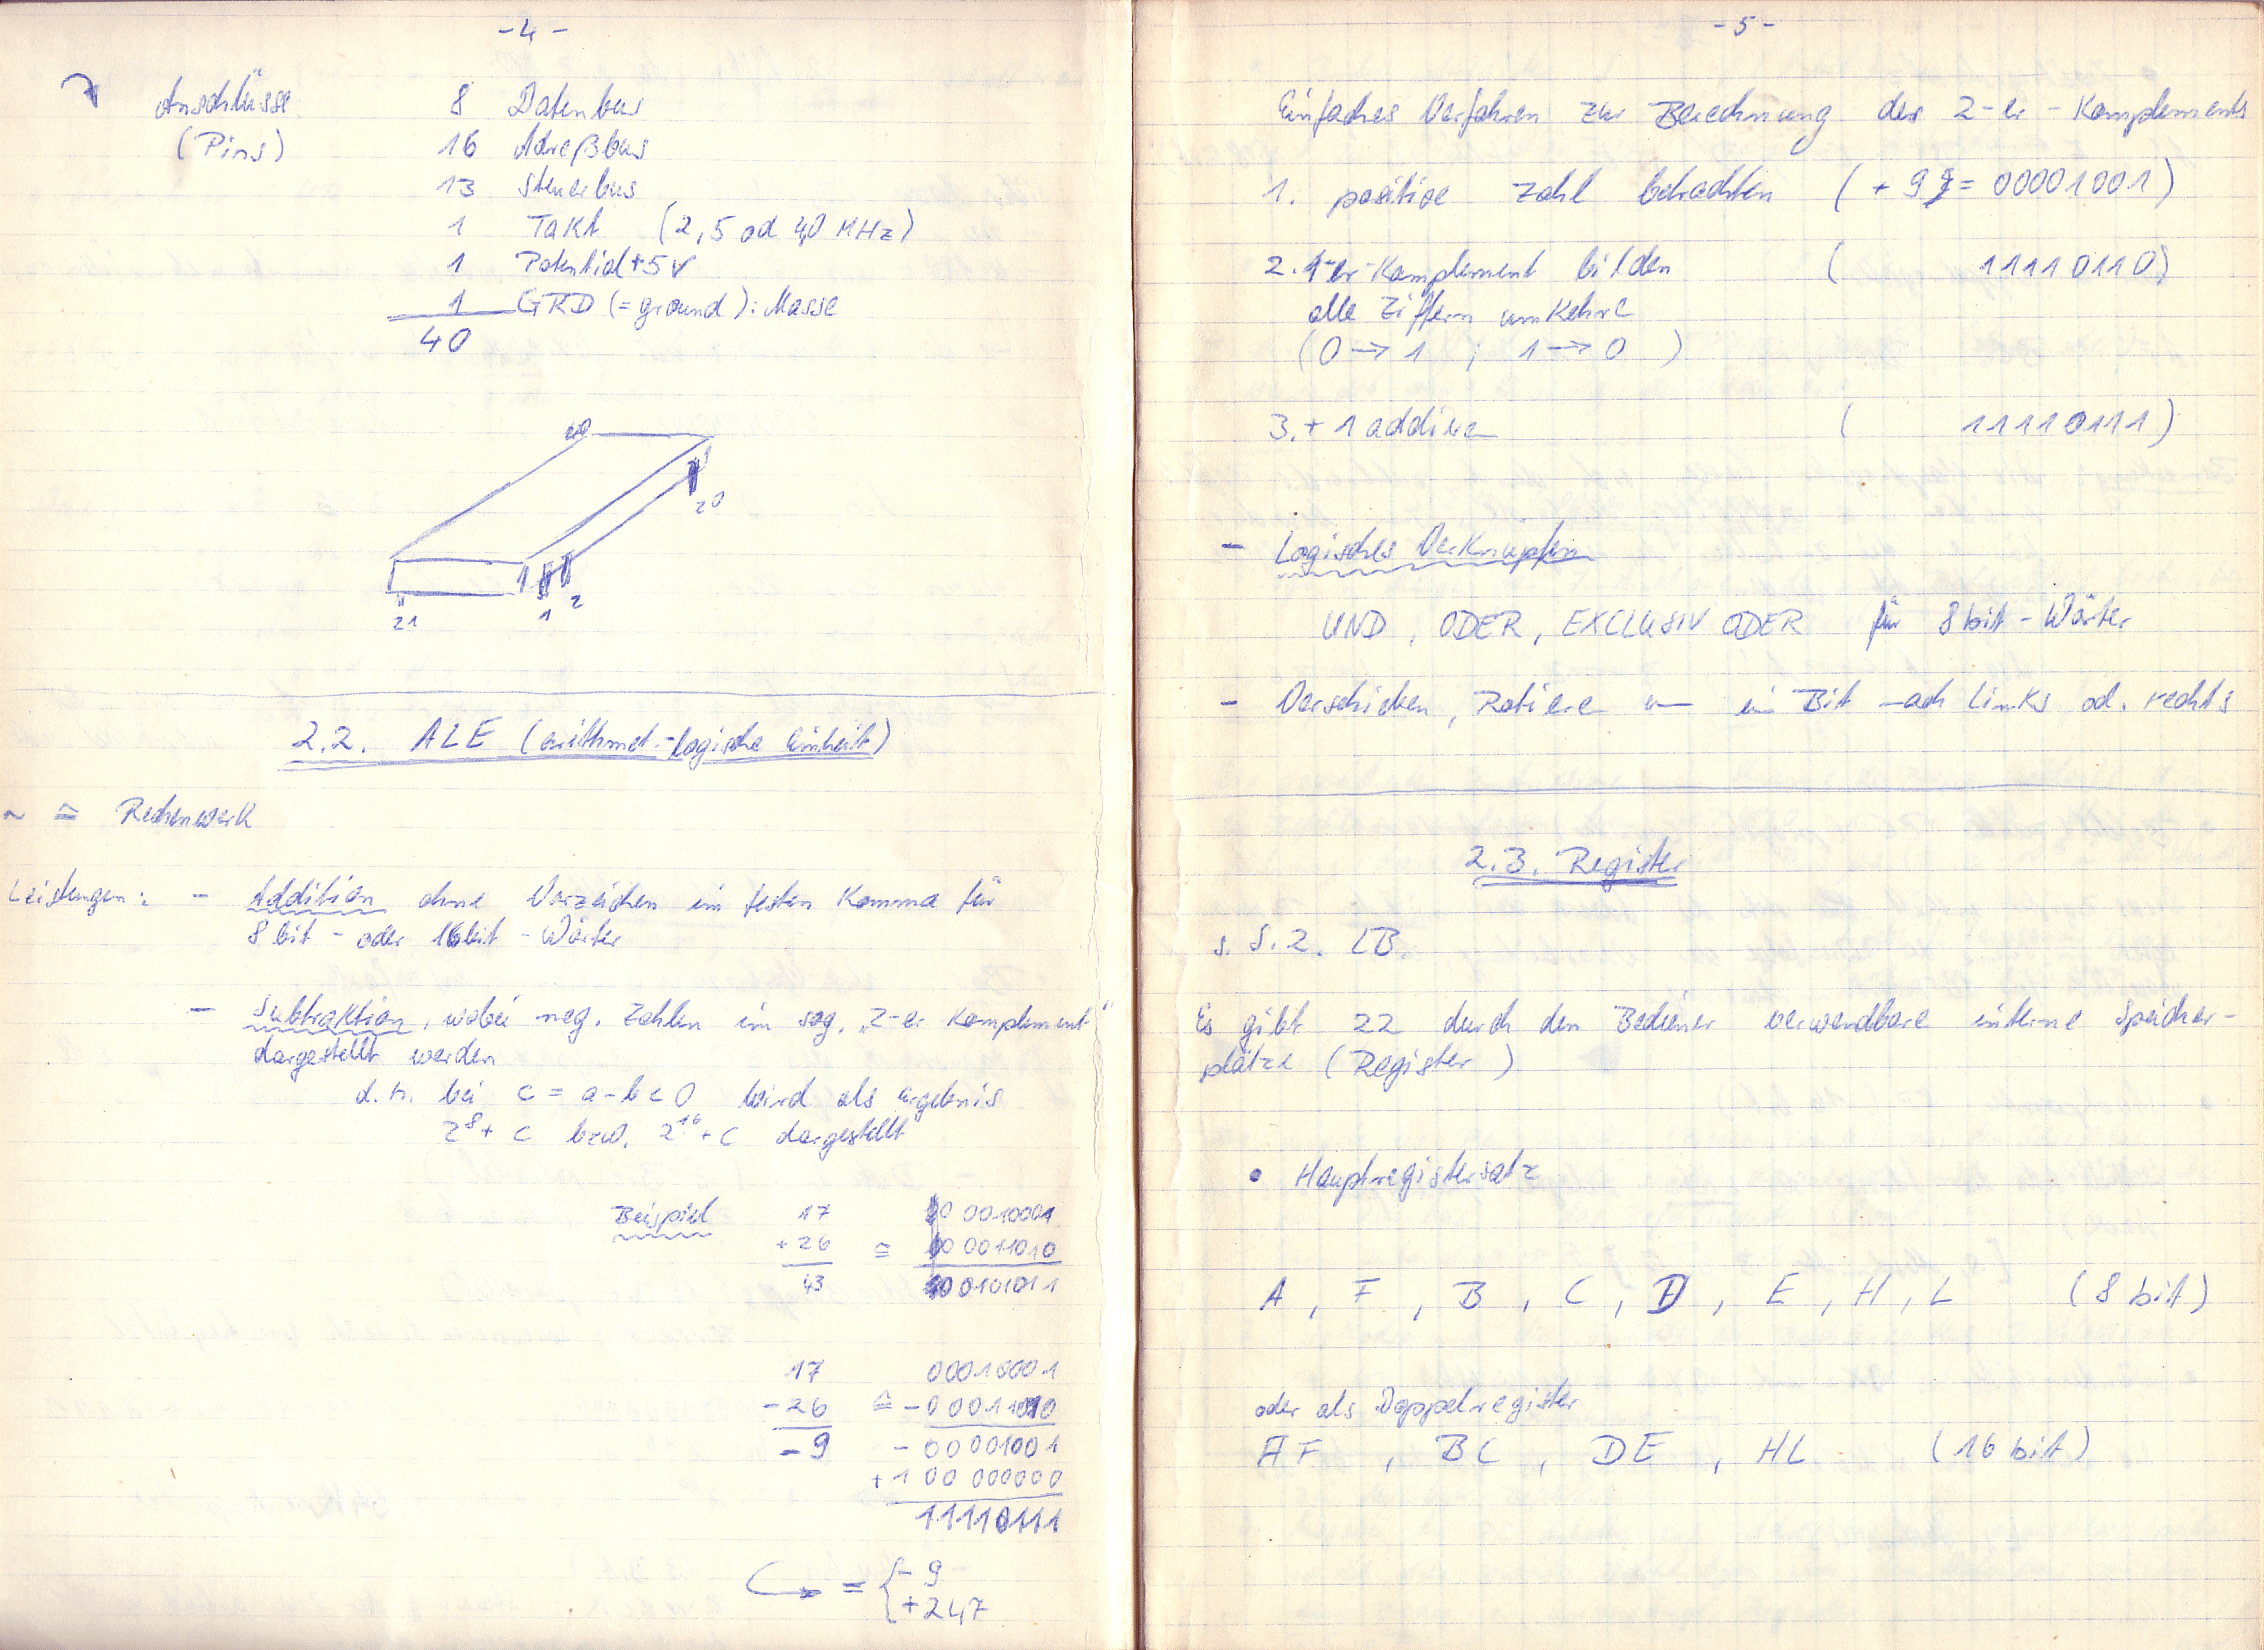 - 4 -
Anschlüsse 8 Datenbus
(Pins) 16 Adreßbus
13 Steuerbus
1 Takt (2,5 od 4,0 MHz)
1 Potential +5V
1 GRD (= ground): Masse
40
40
20
21 1 2
2.2. ALE (arithmet.-logische Einheit)
~ ≙ Rechenwerk
Leistungen: - Addition ohne Vorzeichen im festen Komma für
8 bit - oder 16 bit - Wörter
- Subtraktion, wobei neg. Zahlen im sog. „2-er Komplement“
dargestellt werden
d.h. bei c = a - b < 0 wird als Ergebnis
2⁸ + c bzw. 2¹⁶ + c dargestellt
Beispiel 17 00010001
+ 26 ≙ 00011010
43 00101011
17 00010001
- 26 ≙ - 00011010
- 9 - 00001001
+ 1 00 000000
11110111
= { - 9
+ 247
- 5 -
Einfaches Verfahren zur Berechnung des 2-er-Komplements
1. positive Zahl betrachten (+ 9 = 00001001)
2. 1-er-Komplement bilden ( 11110110)
alle Ziffern umkehren
(0 → 1 ; 1 → 0 )
3. + 1 addieren ( 11110111)
- Logisches Verknüpfen
UND, ODER, EXCLUSIV ODER für 8 bit - Wörter
- Verschieben, Rotieren um ein Bit nach links od. rechts
2.3. Register
s. S. 2. LB.
Es gibt 22 durch den Bediener verwendbare interne Speicher-
plätze (Register)
• Hauptregistersatz
A, F, B, C, D, E, H, L (8 bit)
oder als Doppelregister
AF, BC, DE, HL (16 bit)